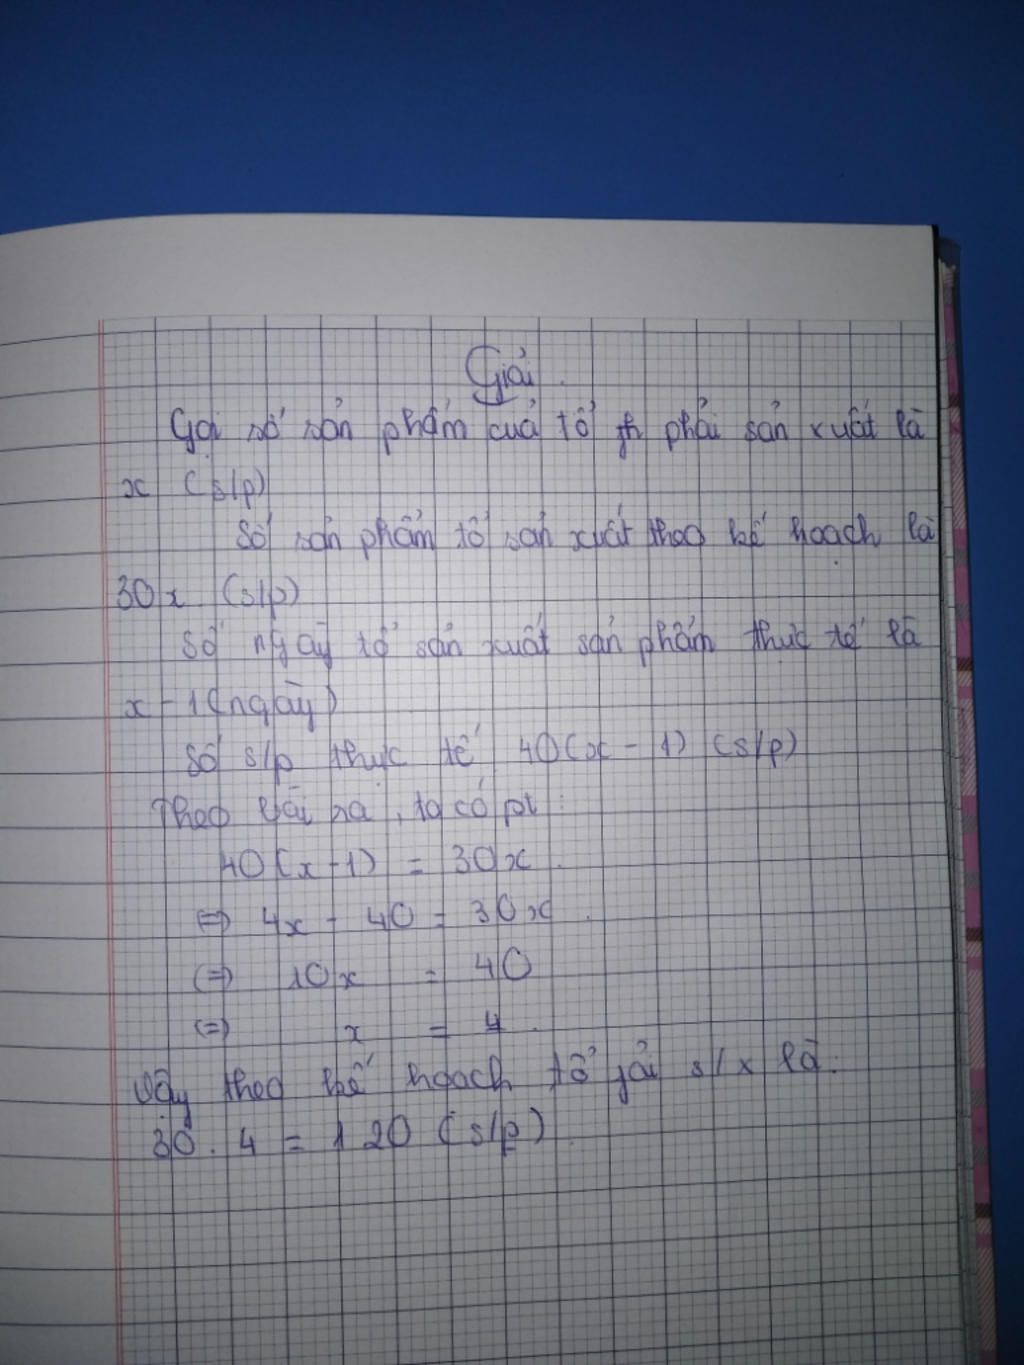 Giải
Gọi số sản phẩm của tổ phải sản xuất là
x (s/p)
Số sản phẩm tổ sản xuất theo kế hoạch là
30x (s/p)
Số ngày tổ sản xuất sản phẩm thực tế là
x - 1 (ngày)
Số s/p thực tế 40(x - 1) (s/p)
Theo bài ra, ta có pt:
40(x - 1) = 30x.
<=> 4x - 40 = 30x.
<=> 10x = 40
<=> x = 4.
Vậy theo kế hoạch tổ s/x là:
30 . 4 = 120 (s/p)